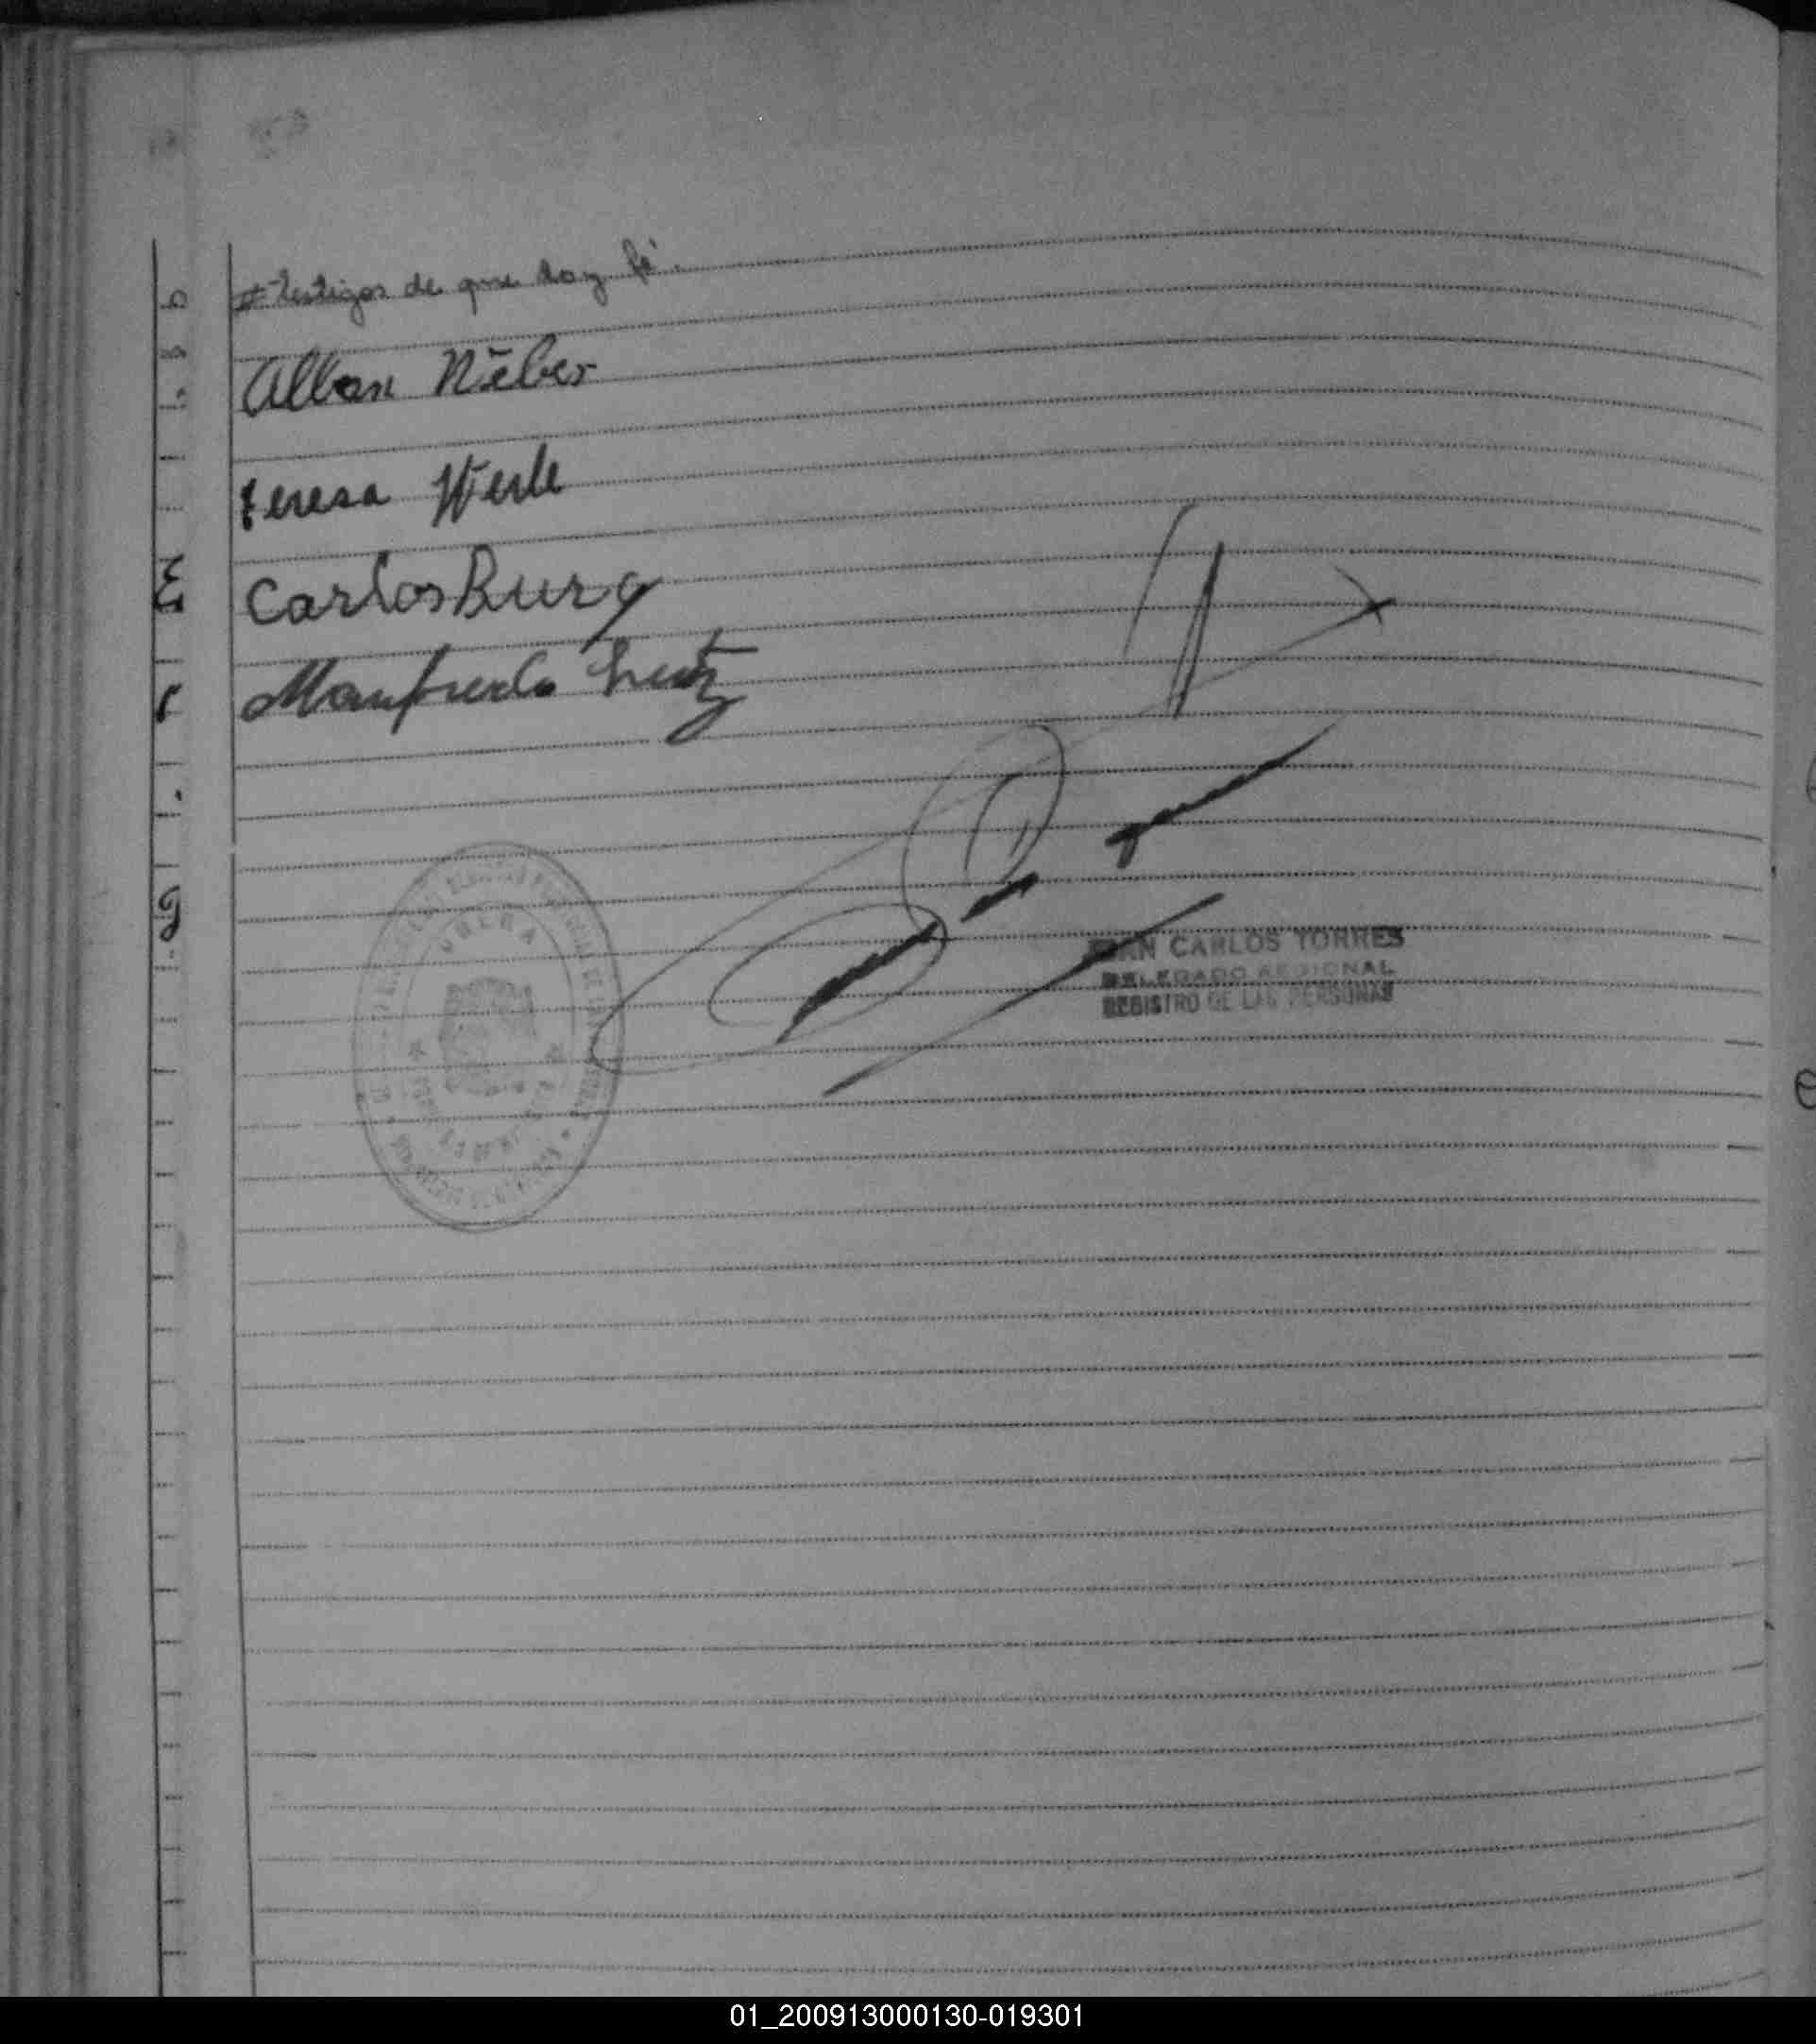 # testigos de que doy fé.
Alban Wéber
teresa Werle
Carlos Burg
Manfredo
JUAN CARLOS TORRES
DELEGADO REGIONAL
REGISTRO DE LAS PERSONAS
01_200913000130-019301